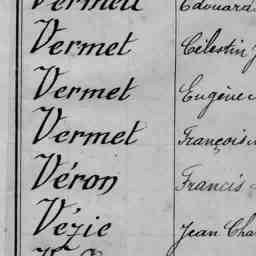 Vermet Célestin
Vermet Eugène
Vermet François
Véron Francis
Vézie Jean Cha